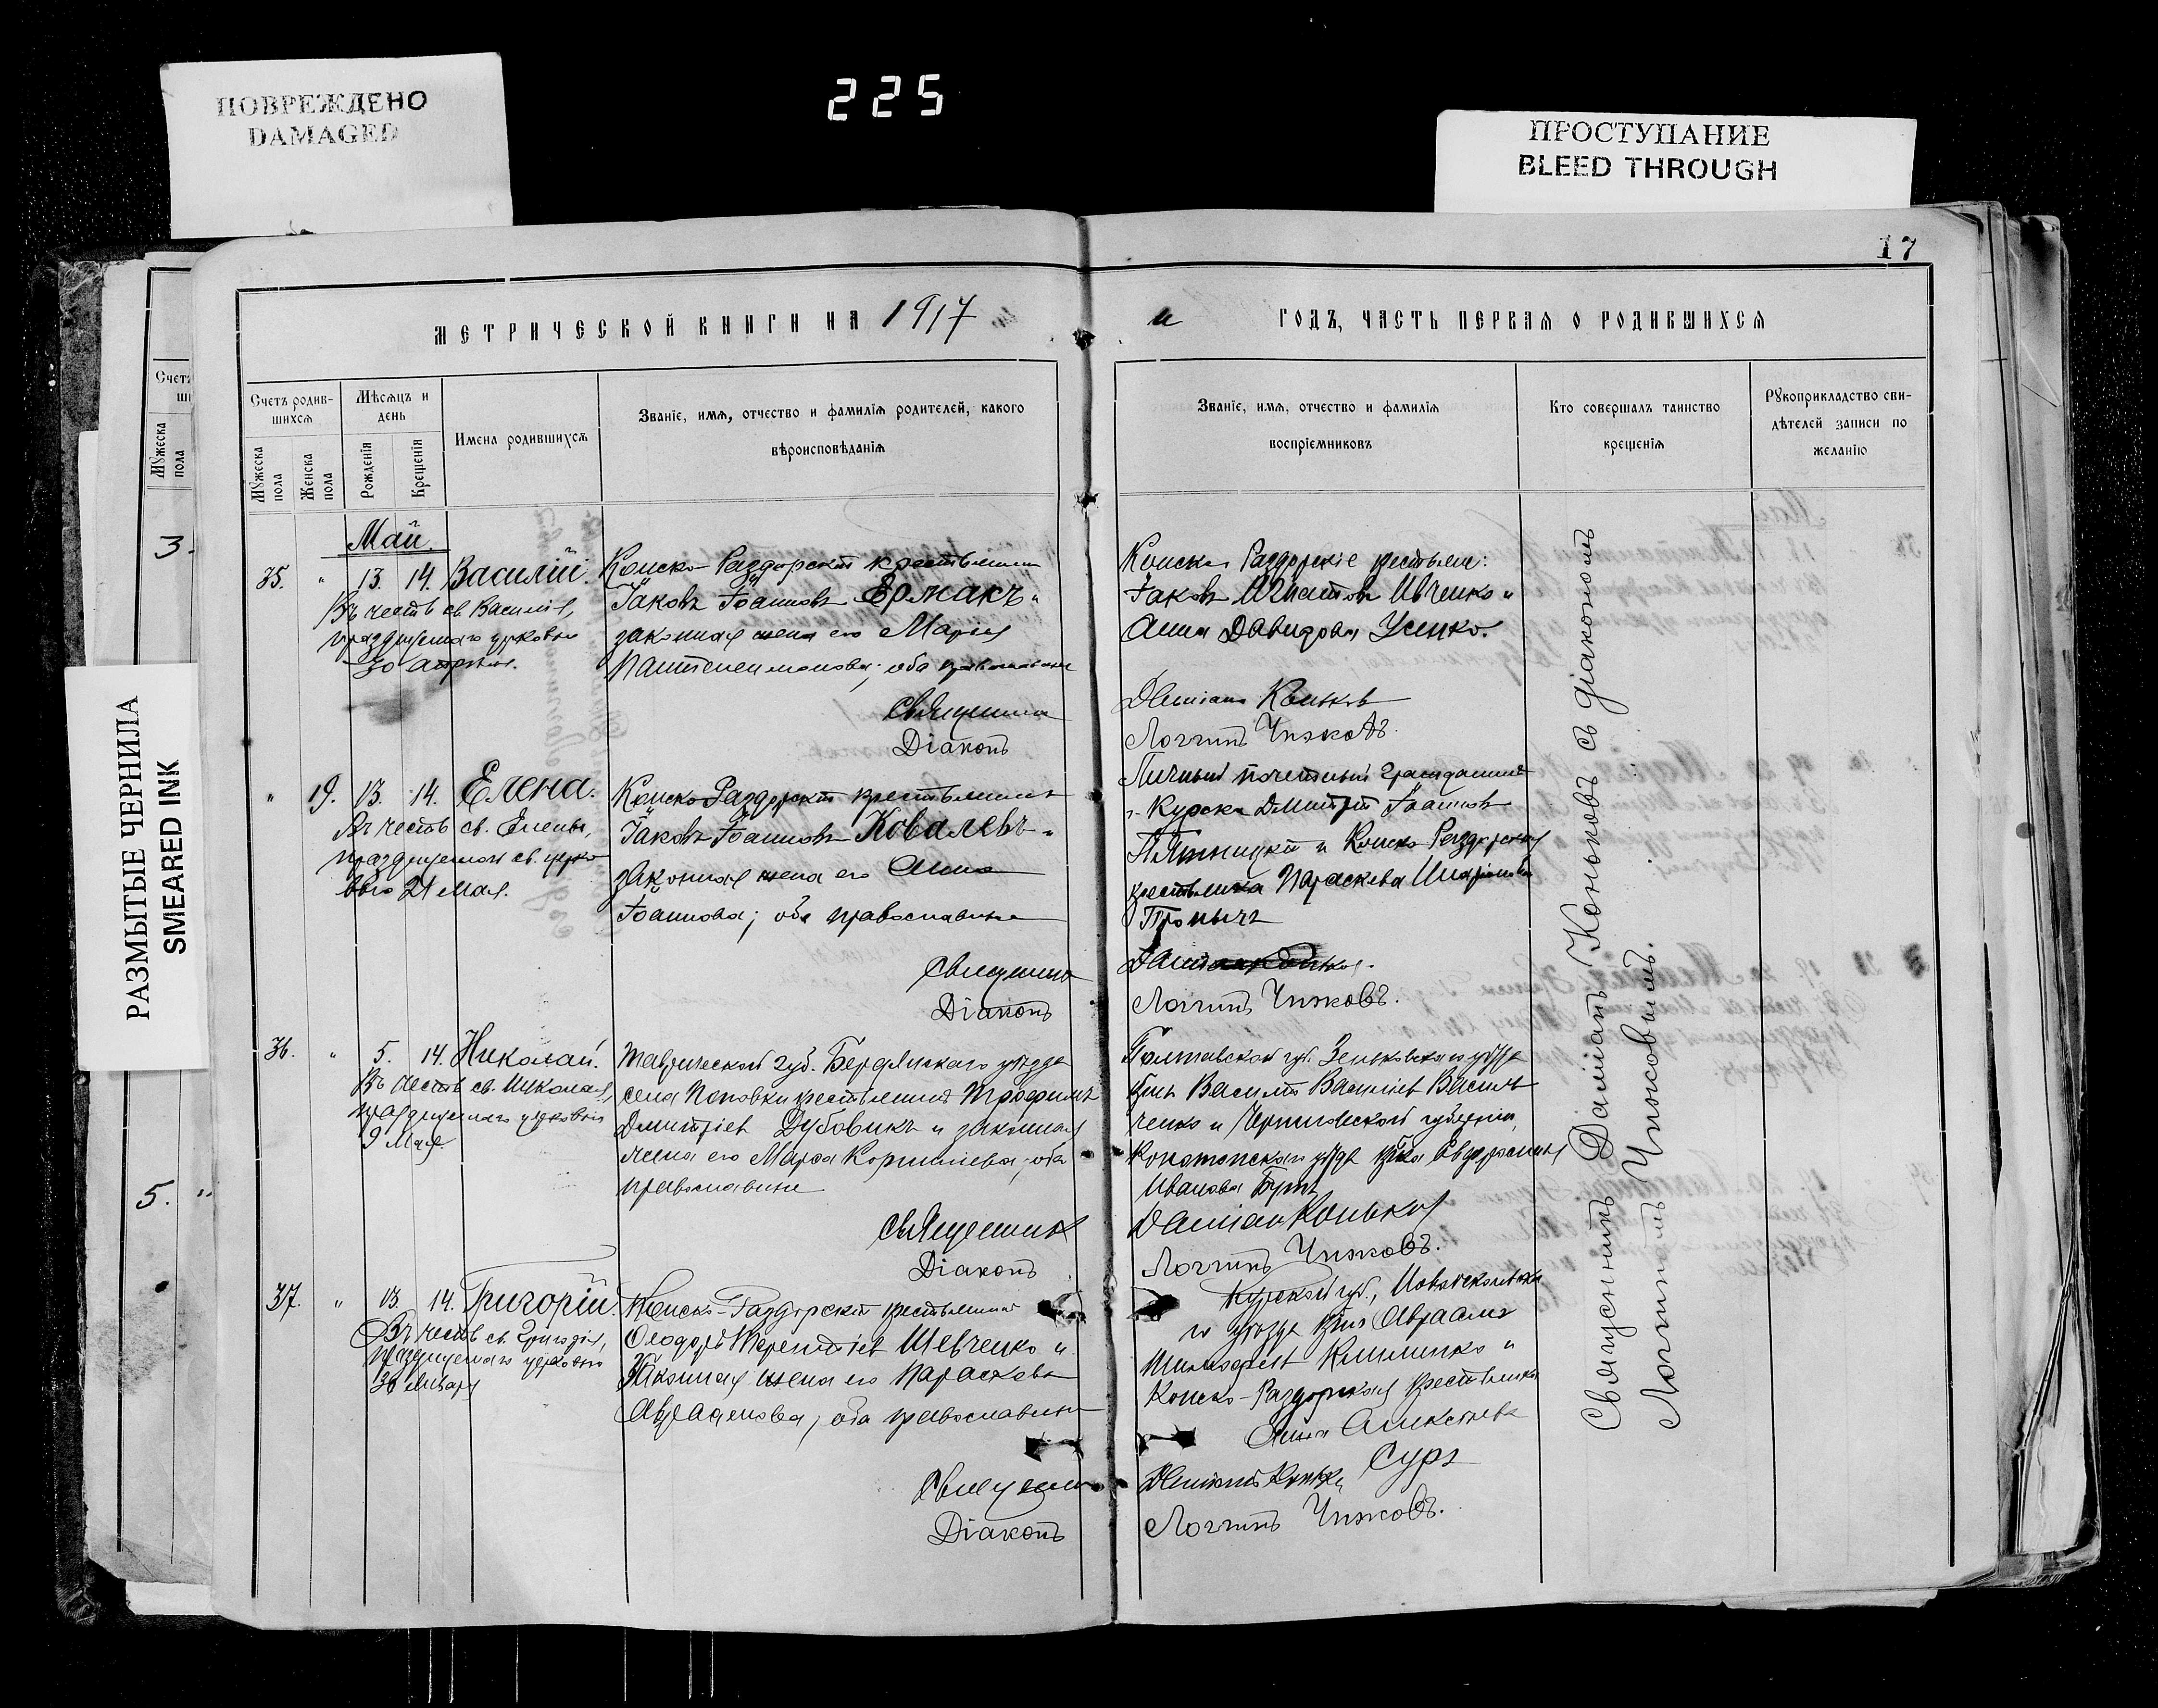 ПОВРЕЖДЕНО
DAMAGED
225
ПРОСТУПАНИЕ
BLEED THROUGH
РАЗМЫТЫЕ ЧЕРНИЛА
SMEARED INK
17
МЕТРИЧЕСКОЙ КНИГИ НА 1917
й ГОДЪ, ЧАСТЬ ПЕРВАЯ О РОДИВШИХСЯ
Счетъ родив-
шихся
Мужеска пола
Женска пола
Мѣсяцъ и
день
Рожденія
Крещенія
Имена родившихся
Званіе, имя, отчество и фамилія родителей, какого
вѣроисповѣданія
Званіе, имя, отчество и фамилія
воспріемниковъ
Кто совершалъ таинство
крещенія
Рукоприкладство сви-
дѣтелей записи по
желанію
3.
5. "
Май.
35. " 13. 14. Василій.
Въ честь св. Василія,
празднуемаго церковію
30 апрѣля.
Конско-Раздорскій крестьянинъ
Іаковъ Іоанновъ Ермакъ и
законная жена его Марія
Пантелеимонова; оба православные
Священникъ
Діаконъ
Конско-Раздорскіе крестьяне:
Іаковъ Игнатовъ Ивченко и
Анна Давидова Усенко.
Даміанъ Коньковъ
Логгинъ Чижовъ.
" 19. 13. 14. Елена.
Въ честь св. Елены,
празднуемой св. церко-
вью 21 мая.
Конско-Раздорскій крестьянинъ
Іаковъ Іоанновъ Ковалевъ и
законная жена его Анна
Іоаннова; оба православные
Священникъ
Діаконъ
Личный почетный гражданинъ
г. Курска Дмитрій Іоанновъ
Пятницкій и Конско-Раздорская
крестьянка Параскева Иларіонова
Даміанъ Коньковъ.
Логгинъ Чижовъ.
36. " 5. 14. Николай.
Въ честь св. Николая,
празднуемаго церковію
9 Мая.
Таврической губ. Бердянскаго уѣзда
села Поповки крестьянинъ Трофимъ
Дмитріевъ Дубовикъ и законная
жена его Марфа Корниліева, оба
православные
Священникъ
Діаконъ
Полтавской губ. Зеньковскаго уѣзда
Василій Василіевъ Василь-
ченко и Черниговской губерніи,
Конотопскаго уѣзда Евфросинія
Иванова
Даміанъ Коньковъ
Логгинъ Чижовъ.
37. " 13. 14. Григорій.
Въ честь св. Григорія,
празднуемаго церковію
30 Января
Конско-Раздорскій крестьянинъ
Ѳеодоръ Терентіевъ Шевченко и
Законная жена его Параскева
Авраамова; оба православные
Священникъ
Діаконъ
Курской губ., Новооскольска-
го уѣзда Авраамъ
Клименко и
Конско-Раздорская крестьянка
Анна Алексіева
Сура
Даміанъ Коньковъ
Логгинъ Чижовъ.
Священникъ Даміанъ Коньковъ съ діакономъ
Логгиномъ Чижовымъ.